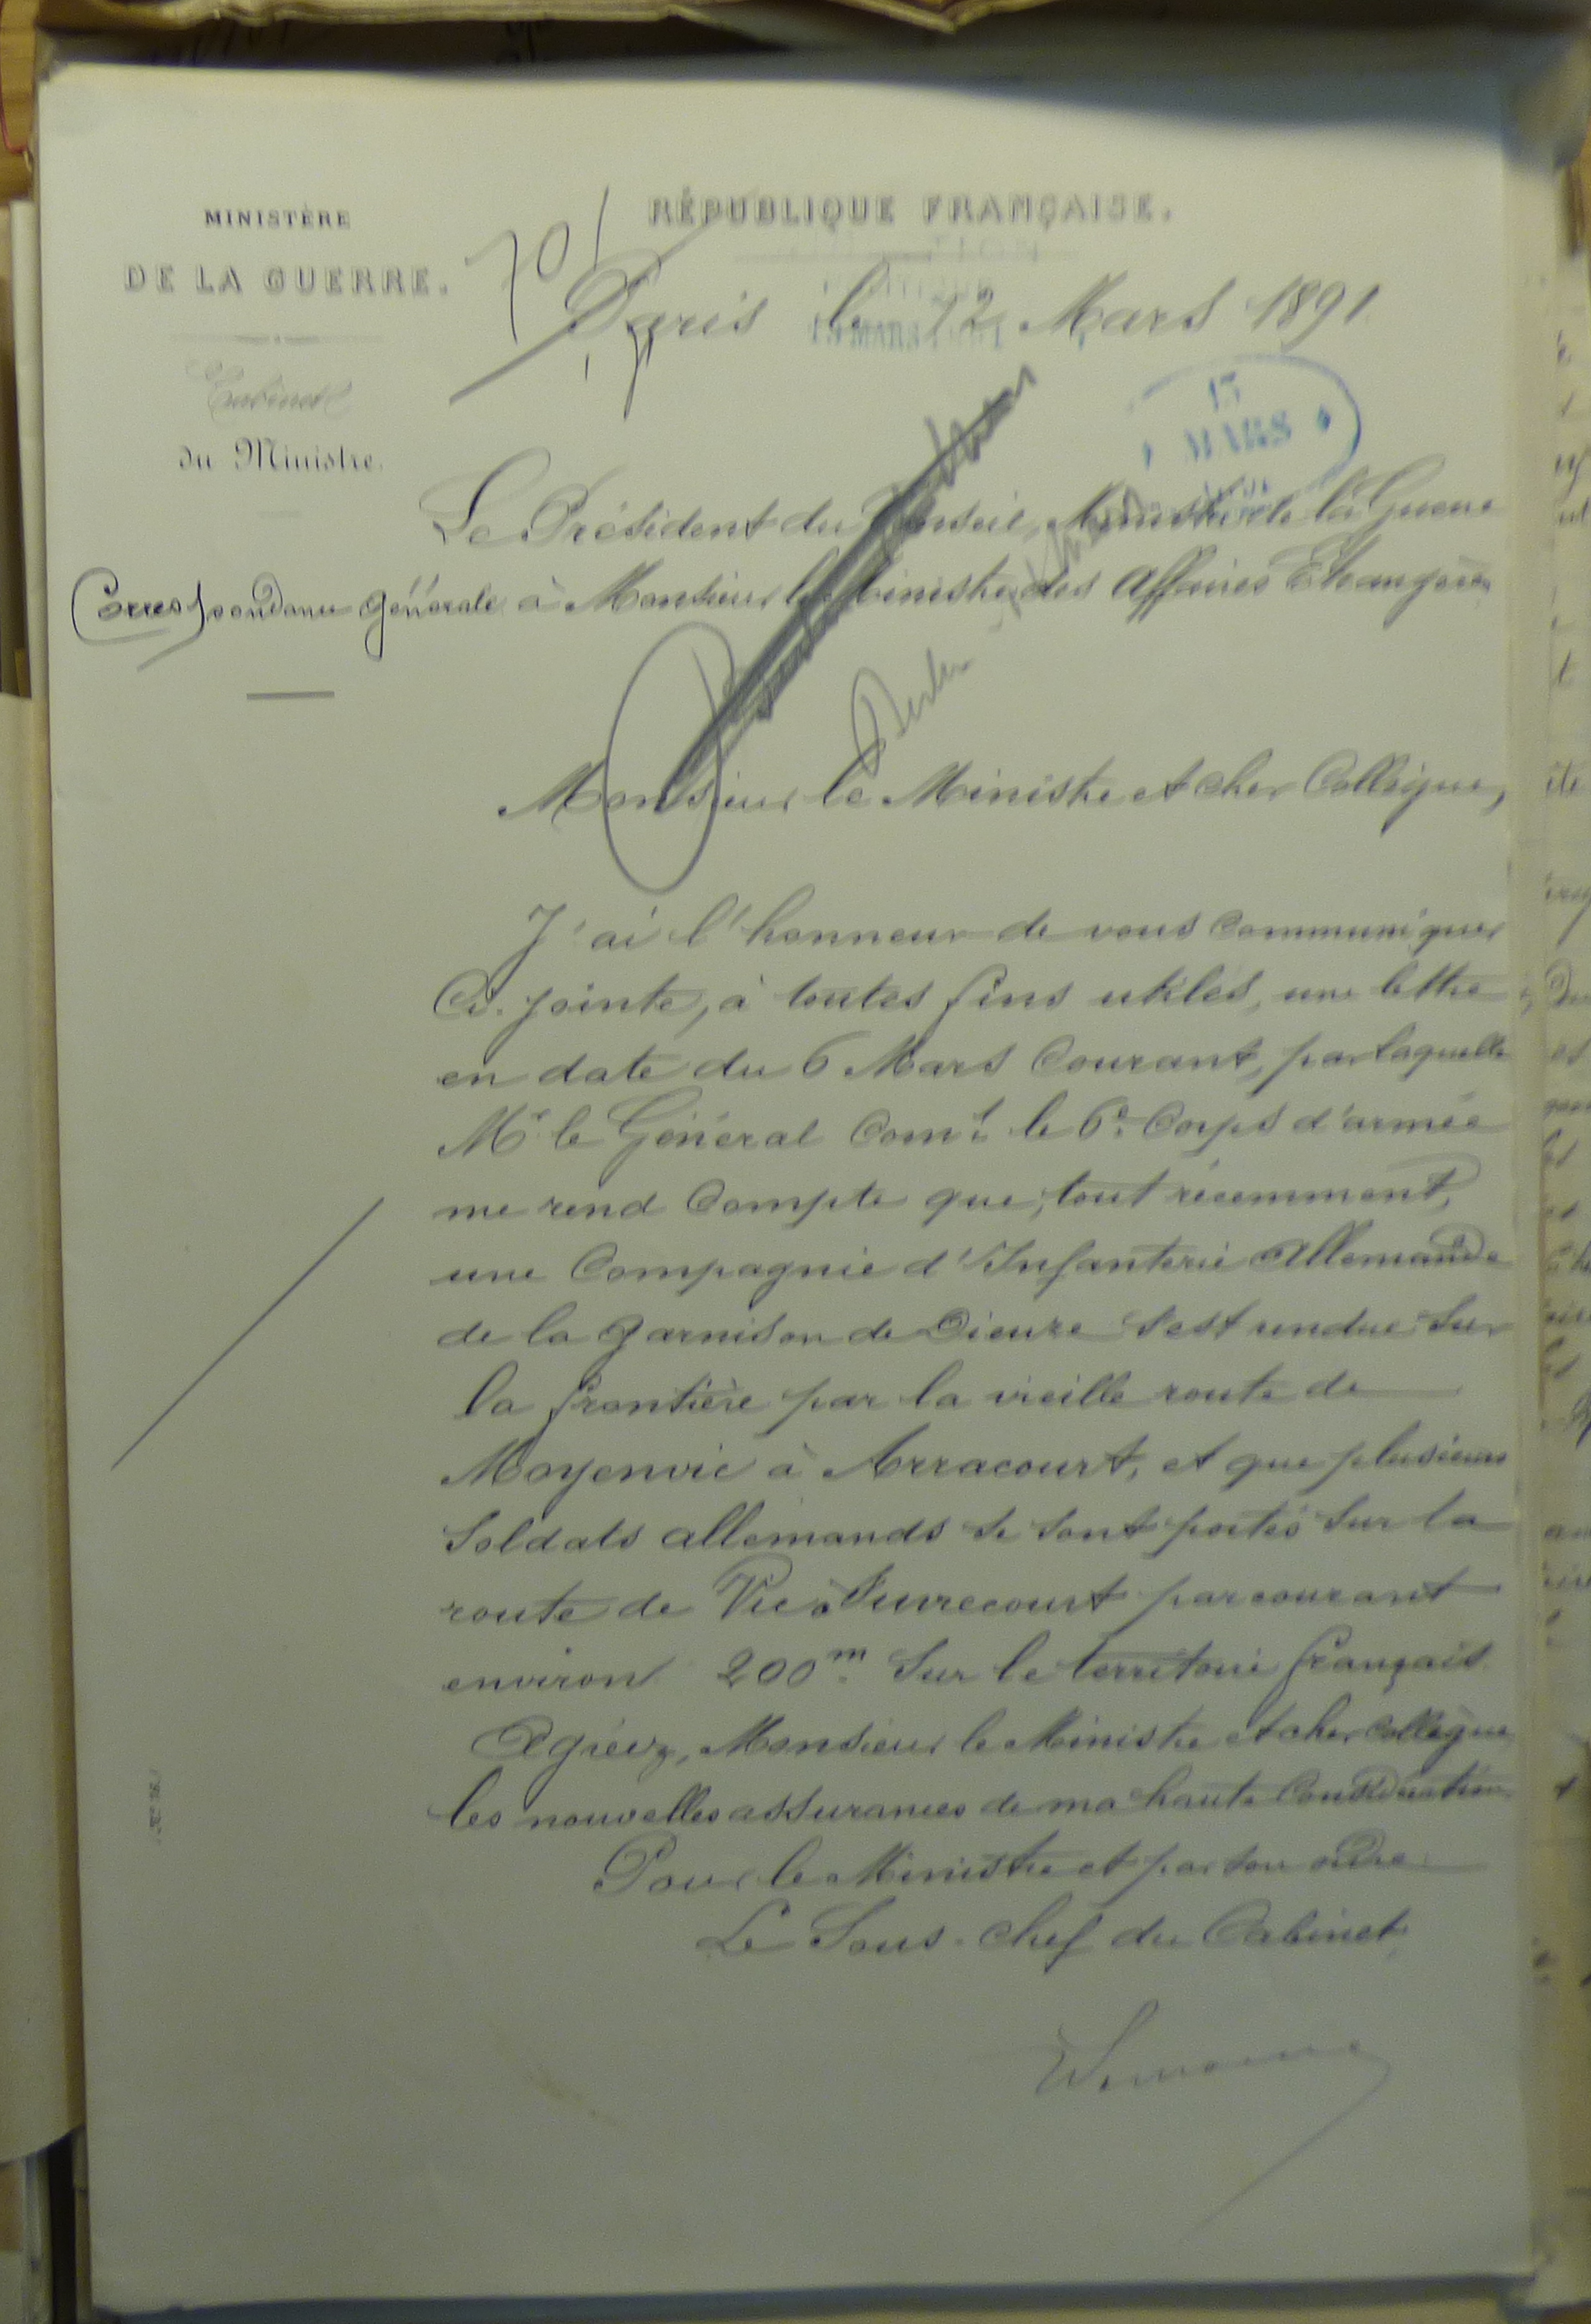 MINISTÈRE
DE LA GUERRE.
Cabinet
du Ministre.
Correspondance générale
RÉPUBLIQUE FRANÇAISE.
Paris le 12 Mars 1891
13 MARS 1891
13
MARS
Le Président du Conseil, Ministre de la Guerre
à Monsieur le Ministre des Affaires Etrangères
Berlin
Monsieur le Ministre et cher Collègue,
J'ai l'honneur de vous communiquer
Ci-jointe, à toutes fins utiles, une lettre
en date du 6 Mars Courant, par laquelle
Mr le Général Comt le 6e Corps d'armée
me rend Compte que, tout récemment,
une Compagnie d'Infanterie Allemande
de la garnison de Dieuze s'est rendue sur
la frontière par la vieille route de
Moyenvic à Arracourt, et que plusieurs
Soldats allemands se sont portés sur la
route de Vic à Juvrecourt parcourant
environ 200m. sur le territoire français.
Agréez, Monsieur le Ministre et cher Collègue
les nouvelles assurances de ma haute Considération
Pour le Ministre et par son ordre
Le Sous-Chef du Cabinet